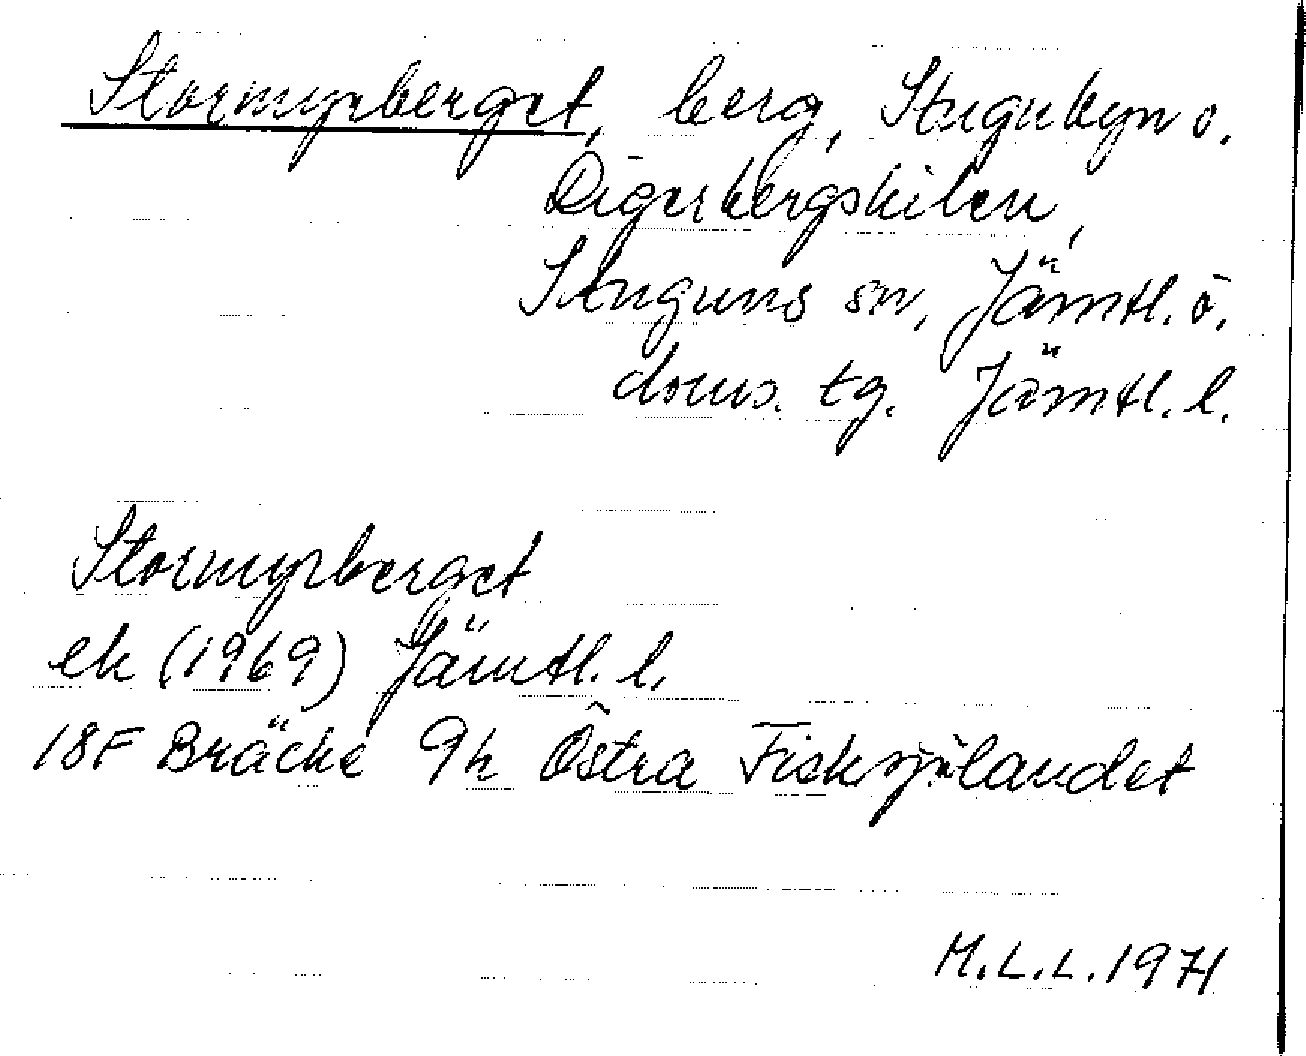 Stormyrberget, berg, Stugubyn o.
Digerbergskilen,
Stuguns sn, Jämtl. ö.
doms. tg. Jämtl. l.
Stormyrberget
ek (1969) Jämtl. l.
18F Bräcke 9h Östra Fisksjölandet
M.L.L. 1971